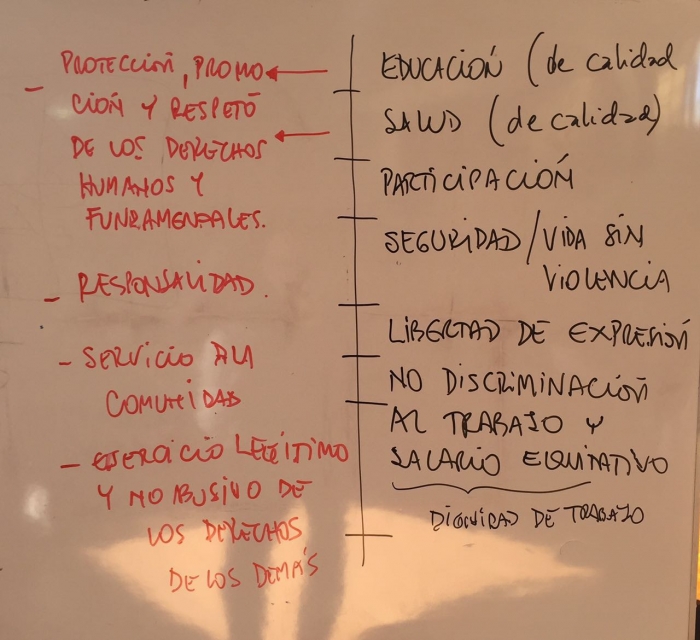 - PROTECCIÓN, PROMO
CIÓN Y RESPETO
DE LOS DERECHOS
HUMANOS Y
FUNDAMENTALES.
- RESPONSALIDAD.
- SERVICIO A LA
COMUNIDAD
- EJERCICIO LEGÍTIMO
Y NO ABUSIVO DE
LOS DERECHOS
DE LOS DEMÁS
EDUCACIÓN (de calidad
SALUD (de calidad)
PARTICIPACIÓN
SEGURIDAD/VIDA SIN
VIOLENCIA
LIBERTAD DE EXPRESIÓN
NO DISCRIMINACIÓN
AL TRABAJO Y
SALARIO EQUITATIVO
DIGNIDAD DE TRABAJO